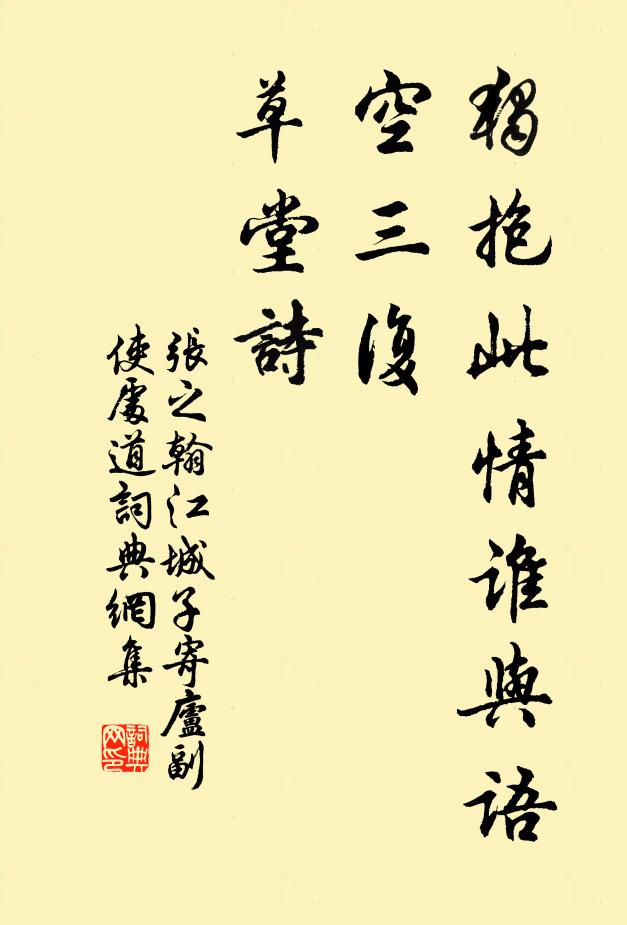 獨抱此情誰與語
空三復
草堂詩
張之翰江城子寄廬副
使處道詞典網集
詞典网印